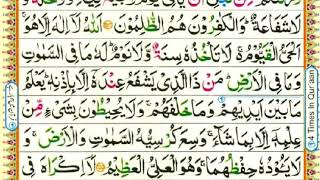 لَا شَفَاعَةٌ ؕ وَالْكٰفِرُوْنَ هُمُ الظّٰلِمُوْنَ اَللّٰهُ لَاۤ اِلٰهَ
الْحَیُّ الْقَیُّوْمُ لَا تَاْخُذُهٗ سِنَةٌ وَّلَا نَوْمٌ ؕ لَهٗ مَا فِی السَّمٰوٰتِ
وَمَا فِی الْاَرْضِ ؕ مَنْ ذَا الَّذِیْ یَشْفَعُ عِنْدَهٗۤ اِلَّا بِاِذْنِهٖ ؕ یَعْلَمُ
مَا بَیْنَ اَیْدِیْهِمْ وَمَا خَلْفَهُمْ ۚ وَلَا یُحِیْطُوْنَ بِشَیْءٍ مِّنْ
عِلْمِهٖۤ اِلَّا بِمَا شَآءَ ۚ وَسِعَ كُرْسِیُّهُ السَّمٰوٰتِ وَالْاَرْضَ ۚ وَ
لَا یَـُٔوْدُهٗ حِفْظُهُمَا ۚ وَهُوَ الْعَلِیُّ الْعَظِیْمُ لَاۤ اِكْرَاهَ فِی
Times In Qur'aan